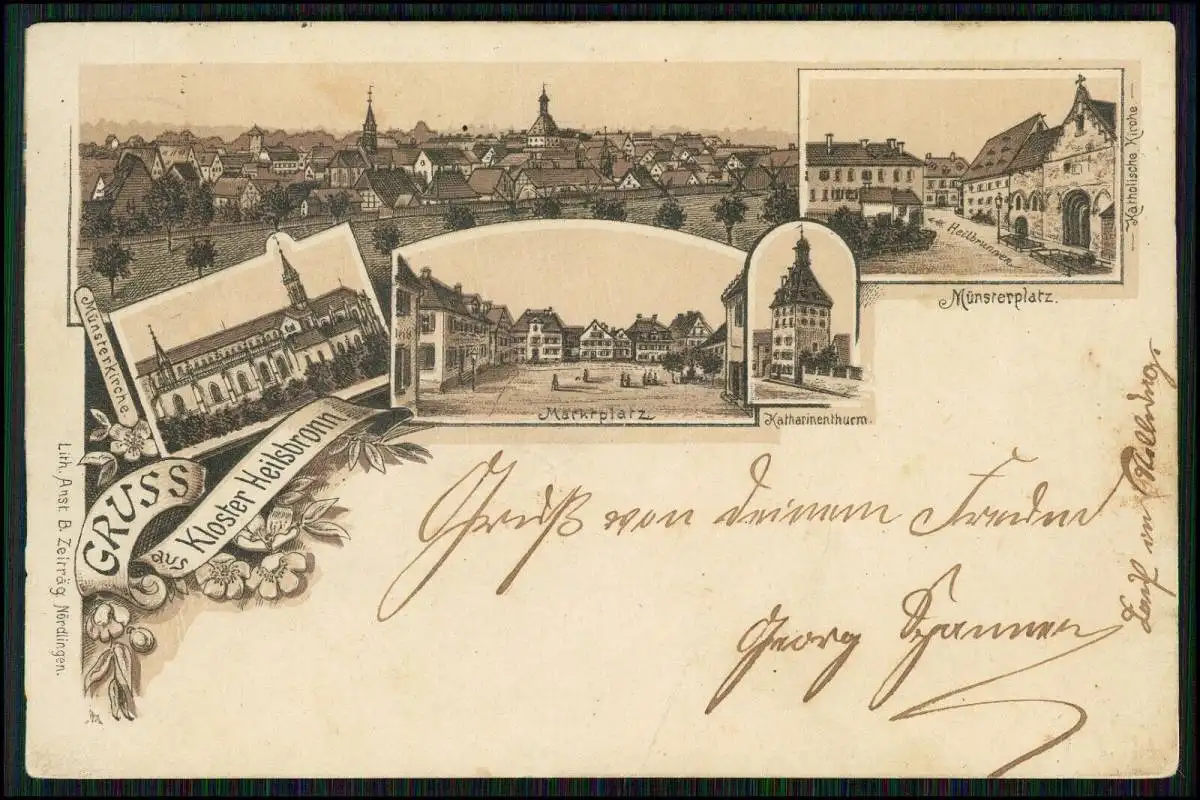 Katholische Kirche
z. Heilbrunnen
Münsterplatz.
Münsterkirche.
Marktplatz
Katharinenthurm.
GRUSS
aus Kloster Heilsbronn
Lith. Anst. B. Zeiträg, Nördlingen.
Gruß von deinem Freund
Georg